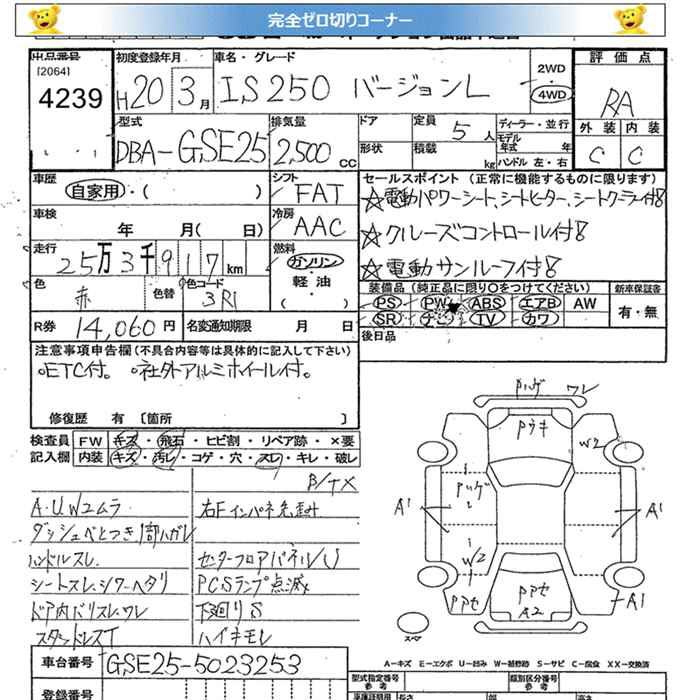 完全ゼロ切りコーナー
出品番号 初度登録年月 車名・グレード 評価点
[2064]
4239 H20 3月 IS250 バージョンL 2WD 4WD RA
外装 内装
C C
型式 排気量 ドア 定員 5人 ディーラー・並行
DBA-GSE25 2,500cc 形状 積載 kg モデル年式 年
ハンドル 左・右
車歴 シフト セールスポイント (正常に機能するものに限ります)
自家用・( ) FAT ☆電動パワーシート、シートヒーター、シートクーラー付き
車検 冷房 ☆クルーズコントロール付き
年 月( 日) AAC ☆電動サンルーフ付き
走行 燃料
25万3千917km ガソリン・軽油・( )
装備品(純正品に限り○をつけてください) 新車保証書
色 色替 色コード PS PW ABS エアB AW 有・無
赤 3R1 SR ナビ TV カワ
R券 14,060円 名変通知期限 月 日 後日品
注意事項申告欄(不具合内容等は具体的に記入して下さい)
○ETC付。 ○社外アルミホイール付。
修復歴 有 [箇所 ]
検査員 FW キズ・飛石・ヒビ割・リペア跡・×要
記入欄 内装 キズ・汚レ・コゲ・穴・スレ・キレ・破レ
B/TX
A.U.Wユムラ 右Fインパネ先歪み
ダッシュベとつき1部ハガレ
ハンドルスレ センターフロアパネルU
シートスレ、シワ、ヘタリ PCSランプ点滅
ドア内バリスレ、ワレ 下廻りS
スタッドレスT ハイキモレ
Pハゲ ワレ
Pウキ
W2
Pハゲ
A1 A1
W2
Pアセ Pアセ A2 A1
スペア
A-キズ E-エクボ U-凹み W-補修跡 S-サビ C-腐食 XX-交換済
車台番号 GSE25-5023253 型式指定番号 類別区分番号
参考 参考
登録番号 長さ 幅 高さ